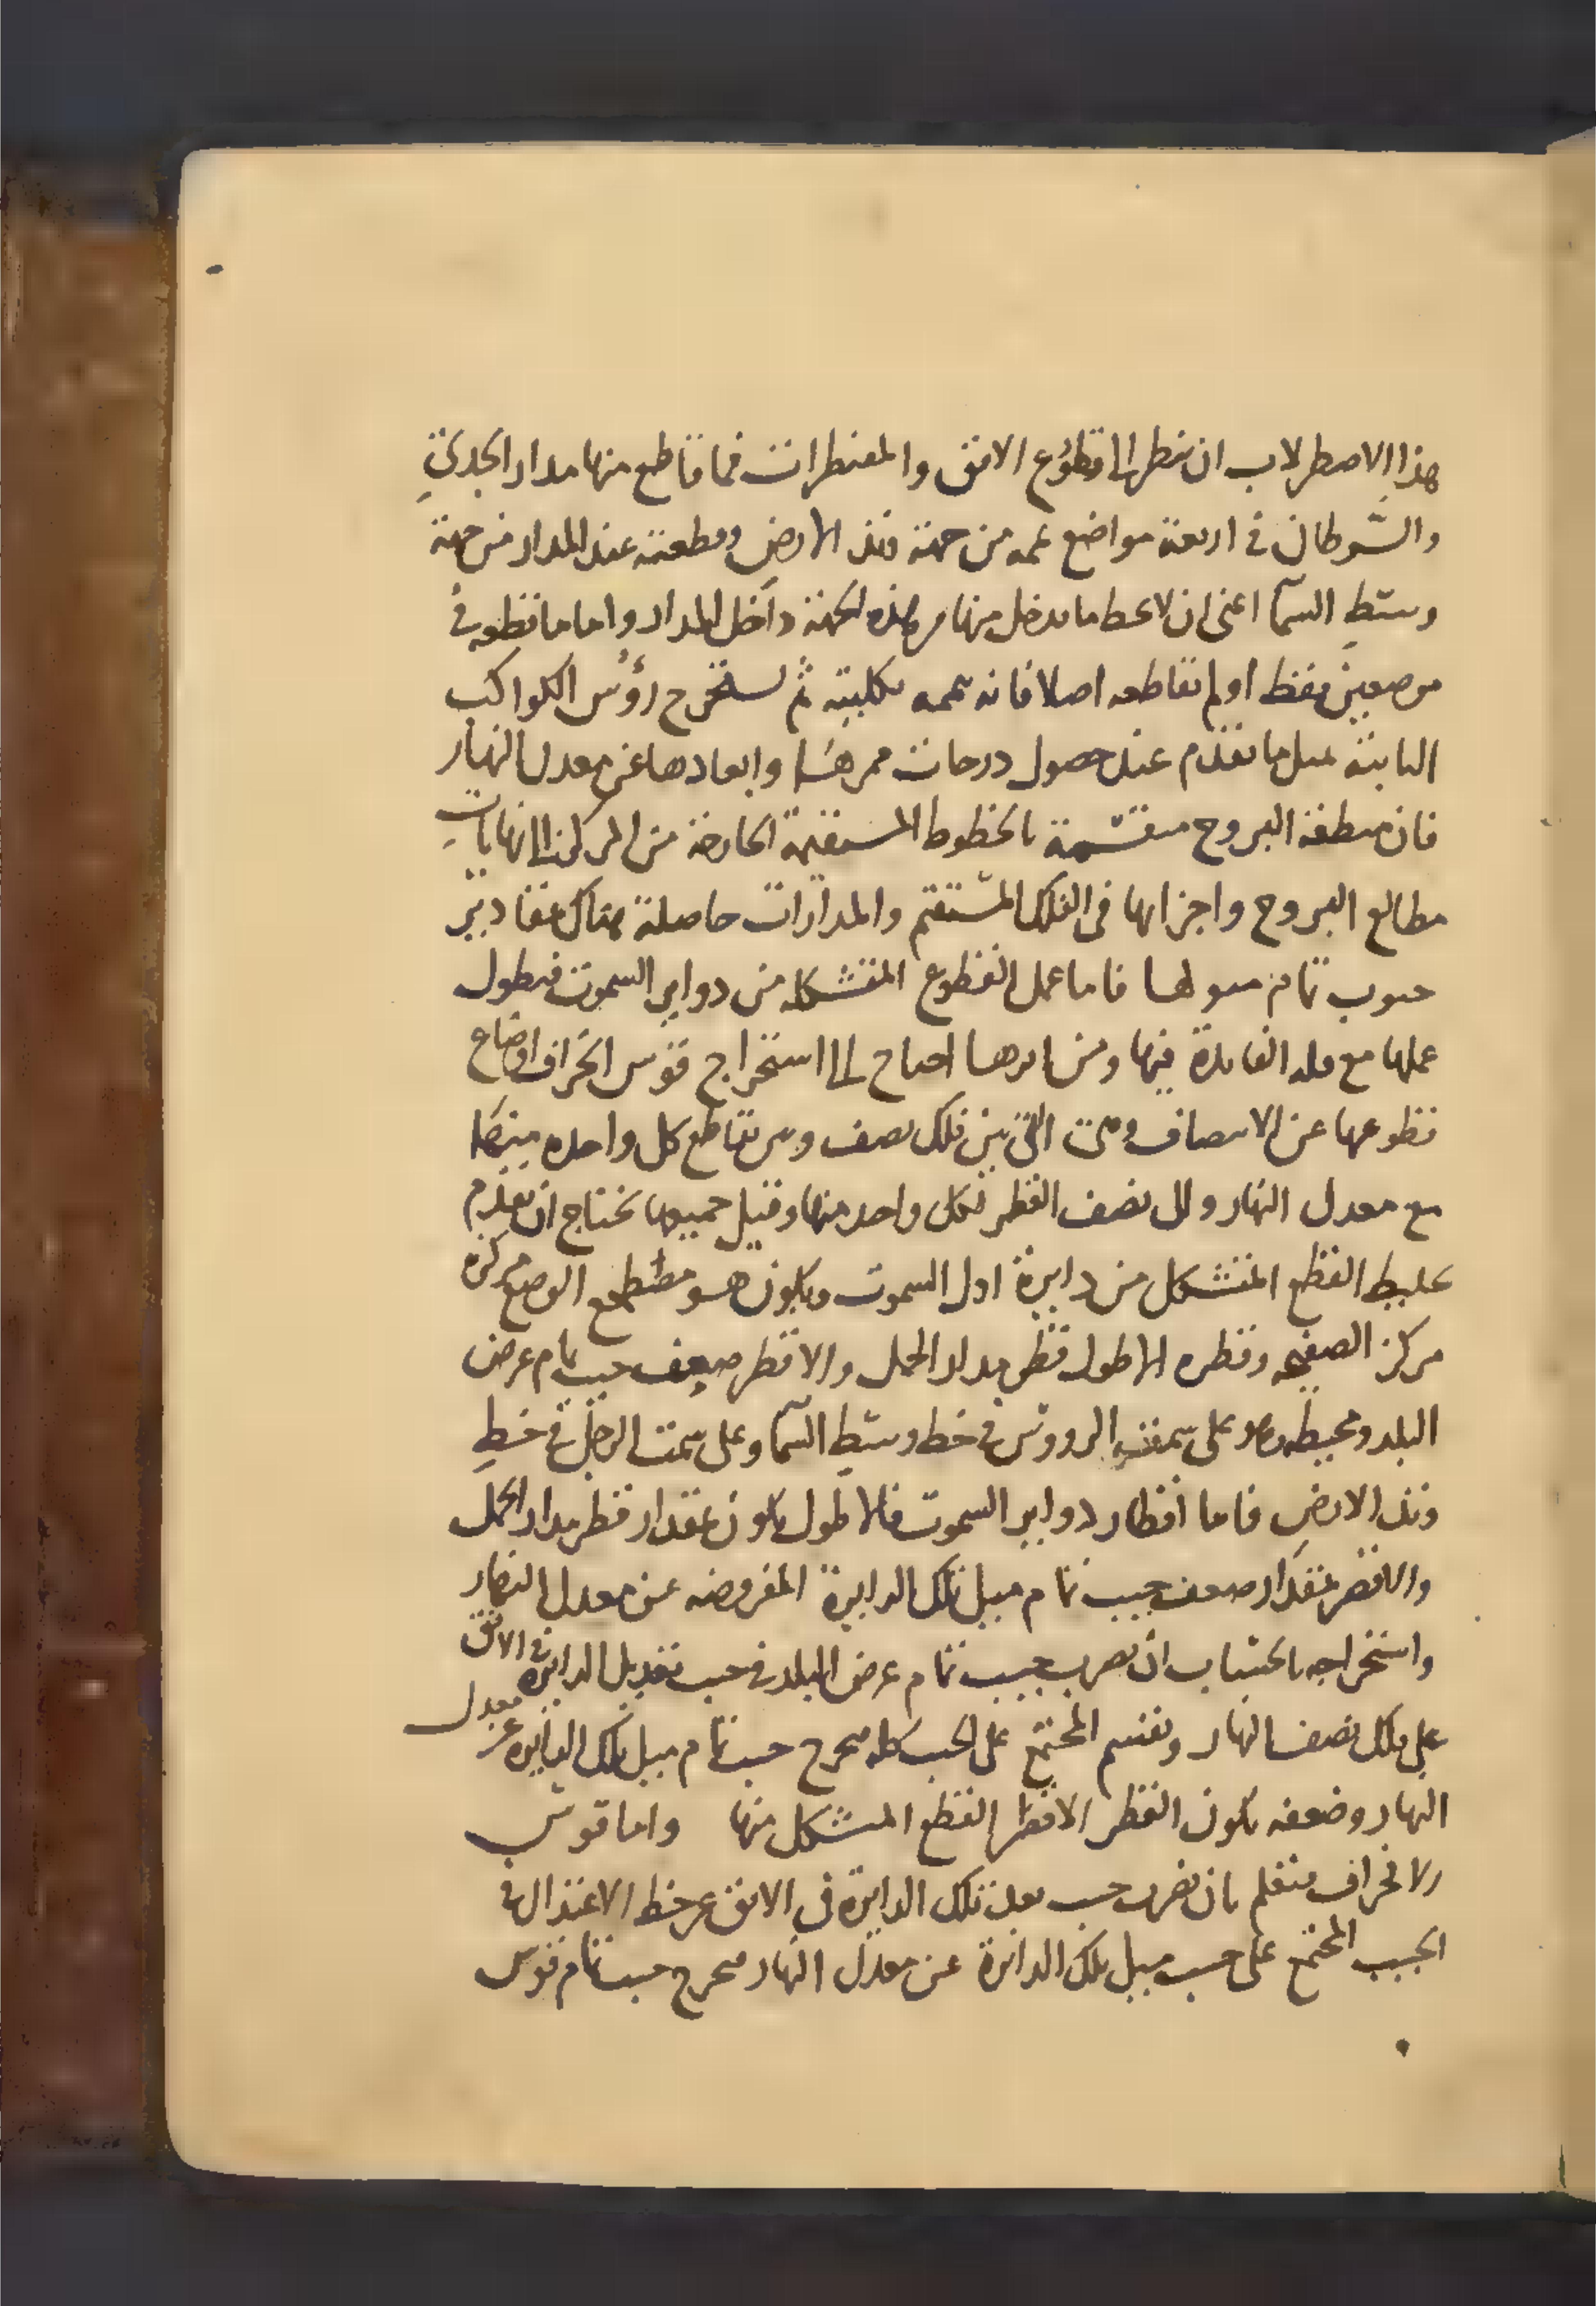 هذا الاصطرلاب ان ننظر الى قطوع الافق والمقنطرات فما قاطع منها مدار الجدي
والسرطان في اربعة مواضع من جهة وتد الارض وقطعته عند المدار من جهة
وسط السما اعني ان لا يخط ما يدخل منها من هذه الجهة داخل المدار واما ما تقطعه في
موضعين فقط او لم تقاطعه اصلا فانه بكليته ثم نستخرج رؤس الكواكب
الثابتة بمثل ما تقدم عند حصول درجات ممرها وابعادها عن معدل النهار
فان منطقة البروج منقسمة بالخطوط المستقيمة الخارجة من المركز الى نهايات
مطالع البروج واجزائها في الفلك المستقيم والمدارات حاصلة هناك بمقادير
جيوب تمام ميولها فاما عمل القطوع المتشكله من دواير السموت فيطول
عملها مع قله الفايدة فيها ومن اثرها احتاج الى استخراج قوس انحراف اوضاع
قطوعها عن الانتصاف وهي التي بين فلك نصف وبين تقاطع كل واحده منها
مع معدل النهار والى نصف القطر لكل واحد منها وقبل جميعها نحتاج ان نقدم
تخطيط القطع المتشكل من دايرة اول السموت ويكون هو الوضع مركزه
مركز الصفيحه وقطره الاطول قطر مدار الحمل والاقصر ضعف جيب تمام عرض
البلد ومحيطه على سمت الرووس في خط وسط السما وعلى سمت الرجل في خط
وتد الارض فاما اقطار دواير السموت فالاطول يكون بمقدار قطر مدار الحمل
والاقصر بمقدار ضعف جيب تمام ميل تلك الدايرة المفروضه عن معدل النهار
واستخراجه بالحساب ان نضرب جيب تمام عرض البلد في جيب تعديل الدايرة في الافق
على فلك نصف النهار ونقسم المجتمع على الجيب كله فيخرج جيب تمام ميل تلك الدايرة عن معدل
النهار وضعفه يكون القطر الاقصر القطع المتشكل منها واما قوس
الانحراف فتعلم بان نضرب جيب بعد تلك الدايرة في الافق عن خط الاعتدال في
الجيب المجتمع على جيب ميل تلك الدائرة عن معدل النهار فيخرج جيب تمام قوس